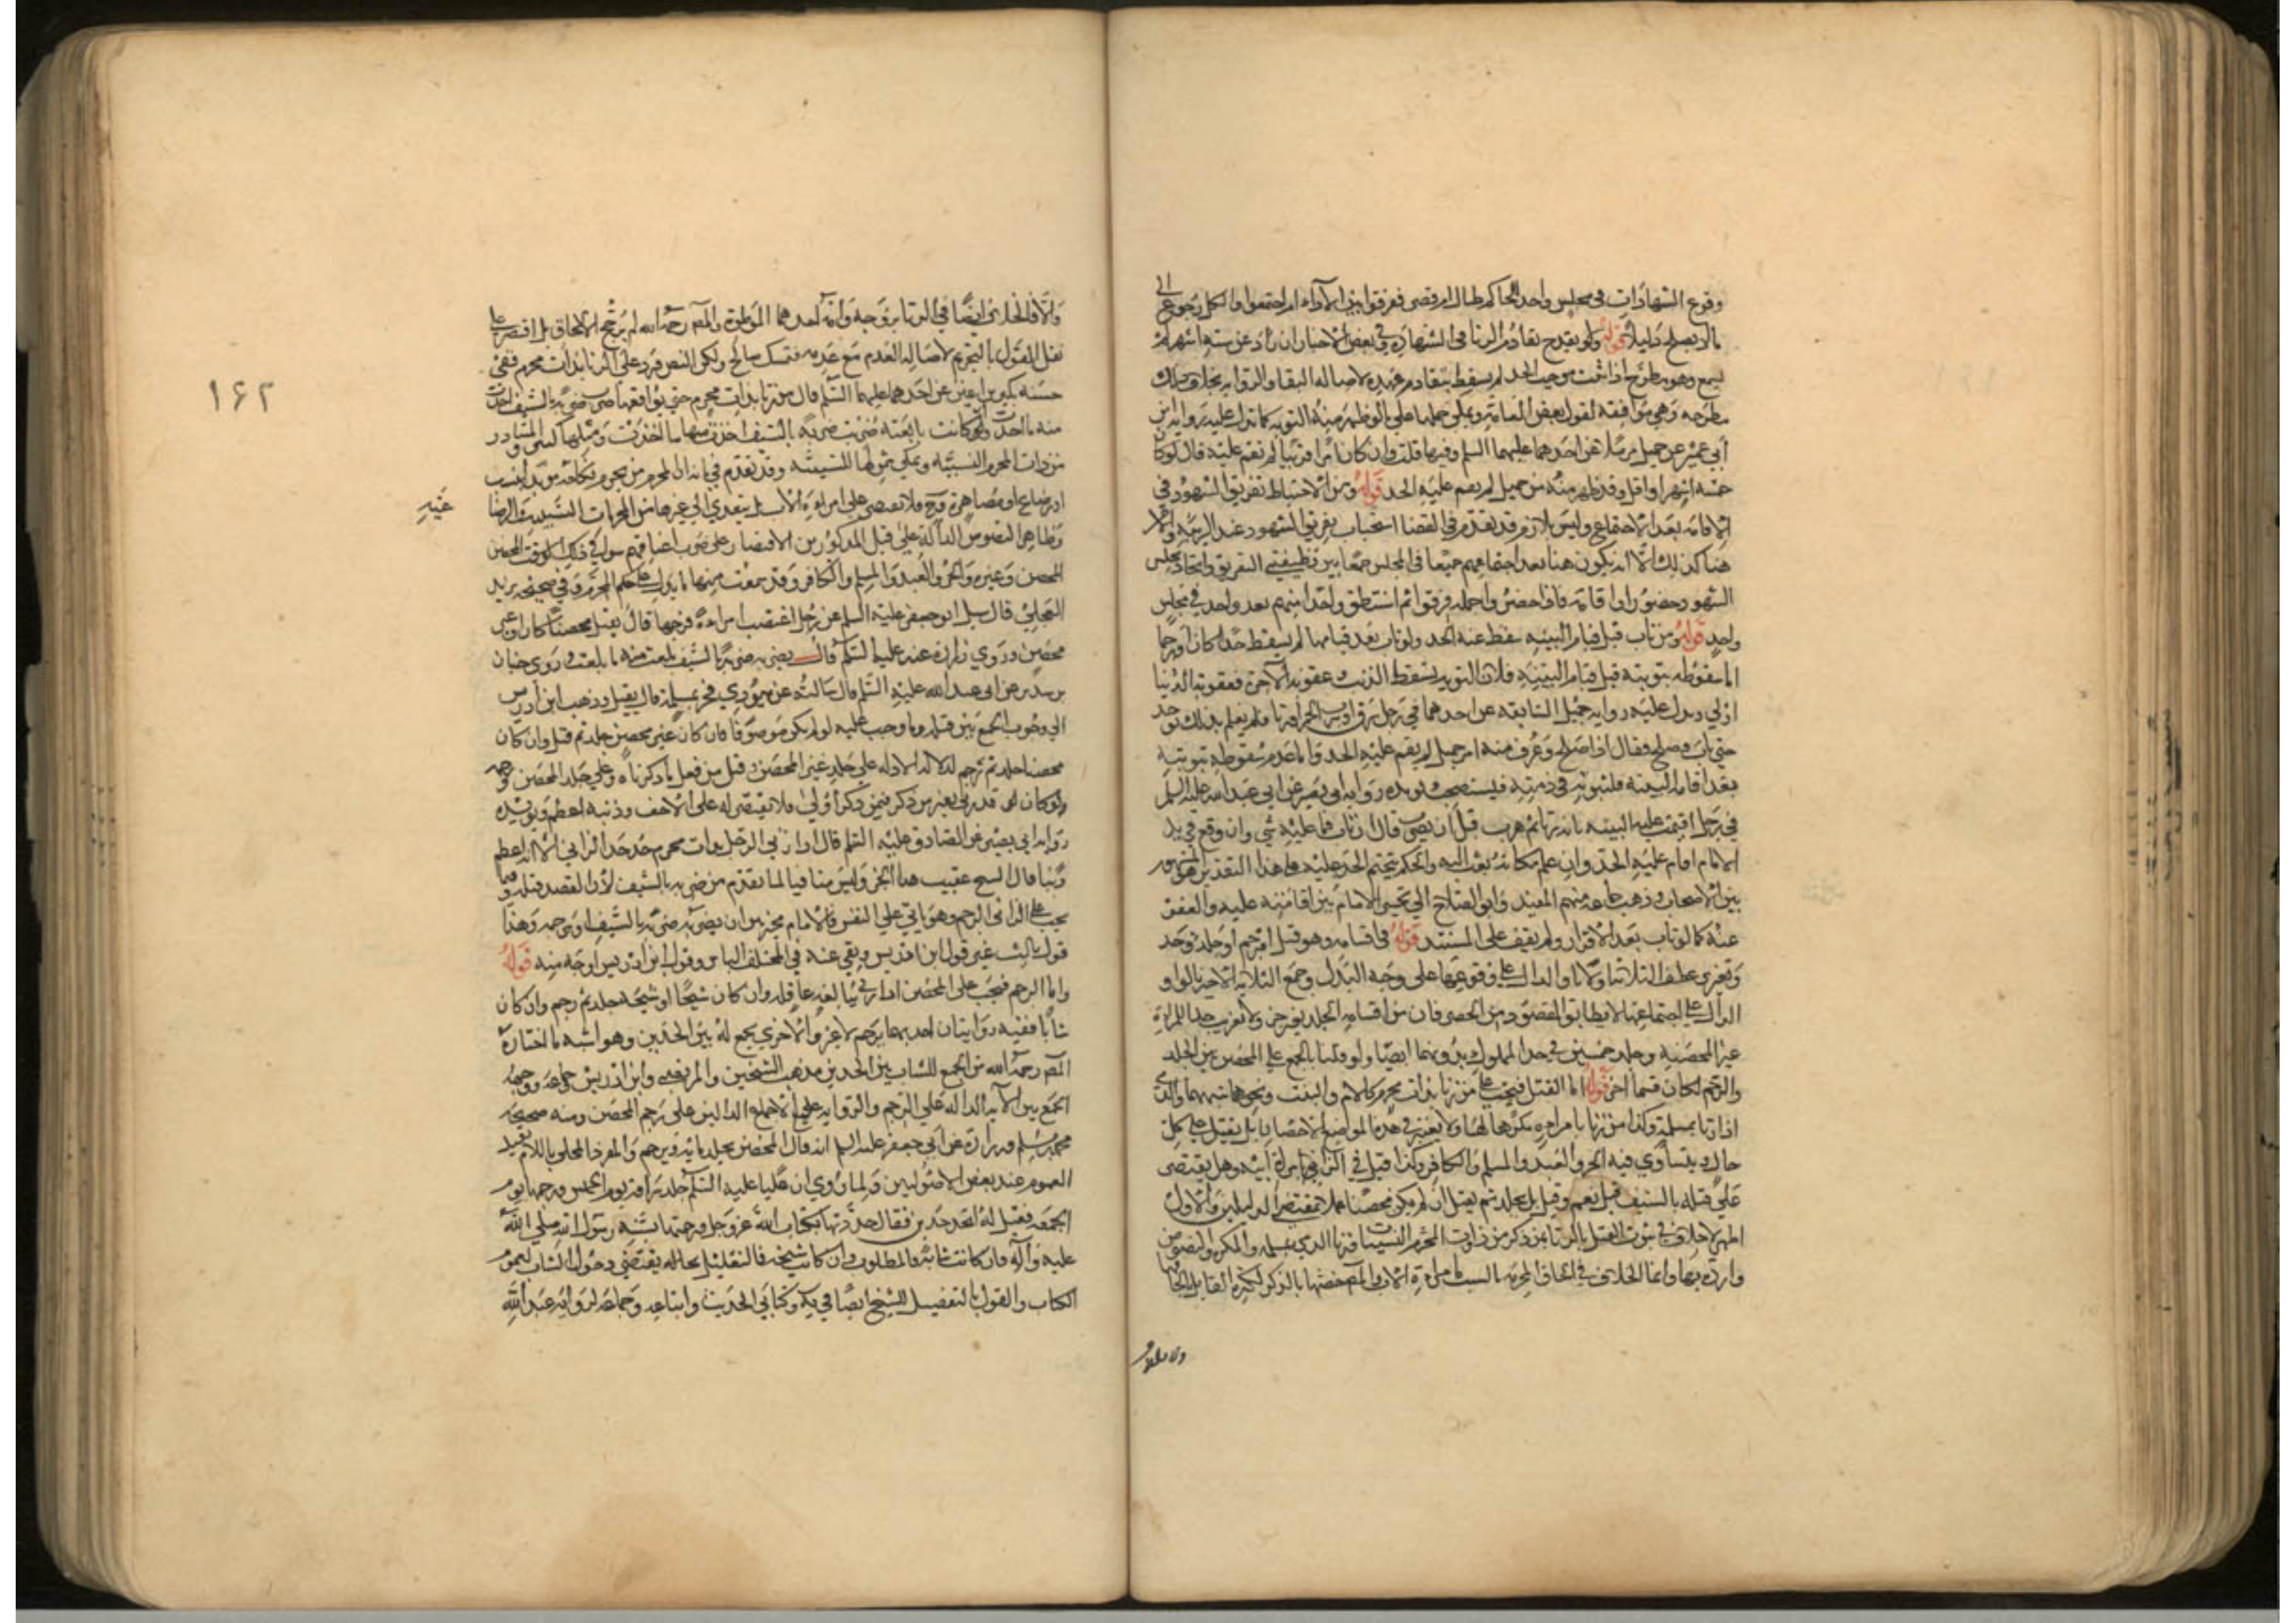 وقوع الشهادات في مجلس واحد للحاكم طال ام قصر فرقوا بين الاداء ام اجتمعوا والكل رجوع الى
ما لا يصلح دليلا قوله ولا يقدح تقادم الزنا في الشهادة وفي بعض الاخبار ان زاد عن ستة اشهر لم
يسمع وهو مطرح اذا ثبت موجب الحد لم يسقط بتقادم عهده لاصالة البقاء والرواية بخلاف ذلك
مطرحه وهي موافقة لقول بعض العامة ويمكن حملها على ما لو ظهر منه التوبة كما تدل عليه رواية ابن
ابي عمير عن جميل مرسلا عن احدهما عليهما السلم وفيها قلت وان كان امرا قريبا لم نقم عليه قال لو كان
خمسة اشهر او اقل وقد ظهر منه امر جميل لم يقم عليه الحد قوله ومن الاحتياط تفريق الشهود في
الاقامة بعد الاجتماع وليس بلازم قد تقدم في القضا استحباب تفريق الشهود عند الريبة
هنا كذلك الا انه يكون هنا بعد اجتماعهم جميعا في المجلس جمعا بين وظيفتي التفريق واتحاد مجلس
الشهود وحضور اداء اقامة فاذا حضروا جملة فرقوا ثم استنطق واحدا منهم بعد واحد في مجلس
واحد قوله ومن تاب قبل قيام البينة سقط عنه الحد ولو تاب بعد قيامها لم يسقط حدا كان او رجما
اما سقوطه بتوبته قبل قيام البينة فلان التوبة يسقط الذنب وعقوبة الاخرة فعقوبة الدنيا
اولى ويدل عليه رواية جميل السابقة عن احدهما في رجل سرق او شرب الخمر او زنا فلم يعلم بذلك منه
حتى تاب وصلح فقال اذا صلح وعرف منه امر جميل لم يقم عليه الحد واما عدم سقوطه بتوبته
بعد اقامة البينة فلثبوته في ذمته فيستصحب ويؤيده رواية ابي بصير عن ابي عبد الله عليه السلم
في رجل اقيمت عليه البينة بانه زنا ثم هرب قبل ان يضرب قال ان تاب فما عليه شي وان وقع في يد
الامام اقام عليه الحد وان علم مكانه بعث اليه والحكم بتحتم الحد عليه على هذا التقدير هو المشهور
بين الاصحاب وذهب جماعة منهم المفيد وابو الصلاح الى تخيير الامام بين اقامته عليه والعفو
عنه كما لو تاب بعد الاقرار ولم يقف على المستند قوله في اقسامه وهو قتل او رجم او جلد وجز
وتغريب عطف الثلاثة اولا باو الدال على وقوعها على وجه البدل وجمع الثلاثة الاخيرة بالواو
الدال على اجتماعها لا يطابق المقصود من الحصر فان من اقسامه الجلد بغير جز ولا تغريب جلد المرأة
غير المحصنة وجلد خمسين في حد المملوك بدونهما ايضا ولو قلنا بالجمع على المحصن بين الجلد
والرجم لكان قسما اخر قوله اما القتل فيجب على من زنا بذات محرم كالام والبنت ونحوهما شبههما والذمي
اذا زنا بمسلمة وكذا من زنا بامراة مكرها لها ولا يعتبر في هذه المواضع الاحصان بل يقتل على كل
حال ويتساوي فيه الحر والعبد والمسلم والكافر وكذا قيل في الزاني بامراة ابيه وهل يقتصر
على قتله بالسيف قيل نعم وقيل بل يجلد ثم يقتل ان لم يكن محصنا عملا بمقتضى الدليلين والاول
اظهر لا خلاف في ثبوت القتل بالزنا بمن ذكر من ذوات المحرم النسبيات وزنا الذمي بمسلمة والمكره والنصوص
واردة بها وانما الخلاف في الحاق المحرمة بالسبب كامراة الاب والمص خصها بالذكر لكثرة القائل بالحاقها
والا فالخلاف
والا فالخلاف ايضا في الزنا بزوجة وانه احدهما الموطوة والمص رحمه الله لم يرجح الالحاق بل اقتصر على
نقل القول بالتحريم لاصالة العدم مع عدم متمسك صالح ولكن النص ورد على الزنا بذات محرم ففي
حسنة بكير بن اعين عن احدهما عليهما السلم قال من زنا بذات محرم حتى يواقعها ضرب ضربة بالسيف اخذت
منه ما اخذت وان كانت تابعته ضربت ضربة بالسيف اخذت منها ما اخذت ومثلها كثير والمتبادر
من ذات المحرم النسبية ويمكن شمولها للسببية وقد تقدم في بابه ان المحرم من يحرم نكاحه مؤبدا بنسب
او رضاع او مصاهرة فلا تقتصر على امراة الاب بل يتعدى الى غيرها من المحرمات السببية والرضاع
غير
وظاهر النصوص الدالة على قتل المذكورين الاقتصار على ضرب اعناقهم سواء في ذلك
المحصن وغيره والحر والعبد والمسلم والكافر وقد سمعت منها ما يدل على حكم المحرم وفي صحيحة بريد
العجلي قال سئل ابو جعفر عليه السلم عن رجل اغتصب امراة فرجها قال يقتل محصنا كان او غير
محصن وروي زرارة عنه عليه السلم قال يضرب ضربة بالسيف بلغت منه ما بلغت وروى حنان
بن سدير عن ابي عبد الله عليه السلم قال سالته عن يهودي فجر بمسلمة قال يقتل وذهب ابن ادريس
الى وجوب الجمع بين قتله وما وجب عليه لو لم يكن موصوفا فان كان غير محصن جلد ثم قتل وان كان
محصنا جلد ثم رجم لدلالة الادلة على جلد غير المحصن وقتل من فعل ما ذكرناه وعلى جلد المحصن ورجمه
ولو كان قد زنى بغير من ذكر فبمن ذكر اولى فلا يقتصر له على الاخف وذنبه اعظم ويؤيده
رواية ابي بصير عن الصادق عليه السلم قال اذا زنى الرجل بذات محرم حد حد الزاني الا انه اعظم
ذنبا قال الشيخ عقيب هذا الخبر وليس منافيا لما تقدم من ضربه بالسيف لان القصد قتله وفيما
يجب على الزاني الرجم وهو ياتي على النفس فالامام مخير بين ان يضربه ضربة بالسيف او يرجمه وهذا
قول ثالث غير قول ابن ادريس وبقي عنه في المختلف الباس وقول ابن ادريس اوجه منه قوله
واما الرجم فيجب على المحصن اذا زنى ببالغة عاقلة وان كان شيخا او شيخة جلد ثم رجم وان كان
شابا ففيه روايتان احديهما يرجم لا غير والاخري يجمع له بين الحدين وهو اشبه ما اختاره
المص رحمه الله من الجمع للشاب بين الحدين مذهب الشيخين والمرتضى وابن ادريس وجماعة ووجهه
الجمع بين الاية الدالة على الرجم والرواية الدالين على رجم المحصن ومنه صحيحة
محمد بن مسلم وزرارة عن ابي جعفر عليه السلم انه قال المحصن يجلد مائة ويرجم والمفرد المحلى باللام يفيد
العموم عند بعض الاصوليين ولما روي ان عليا عليه السلم جلد سراقة يوم الخميس ورجمها يوم
الجمعة فقيل له اتحد حدين فقال حددتها بكتاب الله عز وجل ورجمتها بسنة رسول الله صلى الله
عليه وآله فان كانت شابة فالمطلوب وان كانت شيخة فالتعليل بحاله يقتضي دخول الشاب لعموم
الكتاب والقول بالتفصيل للشيخ ايضا في يه وكتابي الحديث واتباعه وجماعة لرواية عبد الله
۱۶۲